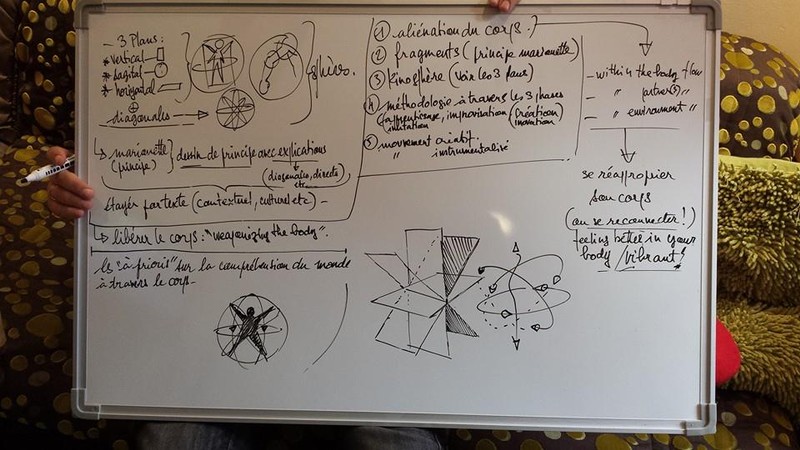 - 3 Plans:
* vertical
* sagital
* horizontal
diagonales
sphère.
↳ marionette
(principe)
dessin de principe avec explications
(diagonales, directs
etc
étayer par texte (contextuel, culturel etc) -
↳ libérer le corps: "weaponizing the body".
les "à priori" sur la compréhension du monde
à travers le corps-
① aliénation du corps.
② fragments (principe marionette)
③ kinosphère (voir les 3 plans)
④ méthodologie à travers les 3 phases
(apprentissage, improvisation, (création
imitation invention)
⑤ mouvement créatif.
" instrumentalisé
- within the body flow
- " partner(s) "
- " environment "
se réapproprier
son corps
(ou se reconnecter!)
feeling better in your
body /vibrant!